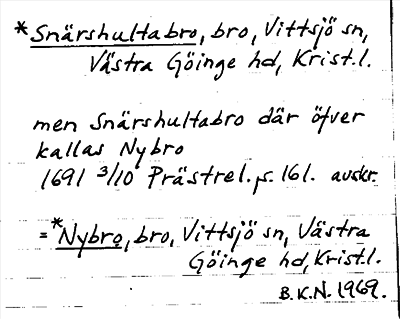 *Snärshultabro, bro, Vittsjö sn,
Västra Göinge hd, Krist.l.
men Snärshultabro där öfver
kallas Nybro
1691 3/10 Prästrel. s. 161. avskr.
=*Nybro, bro, Vittsjö sn, Västra
Göinge hd, Krist.l.
B.K.N. 1969.